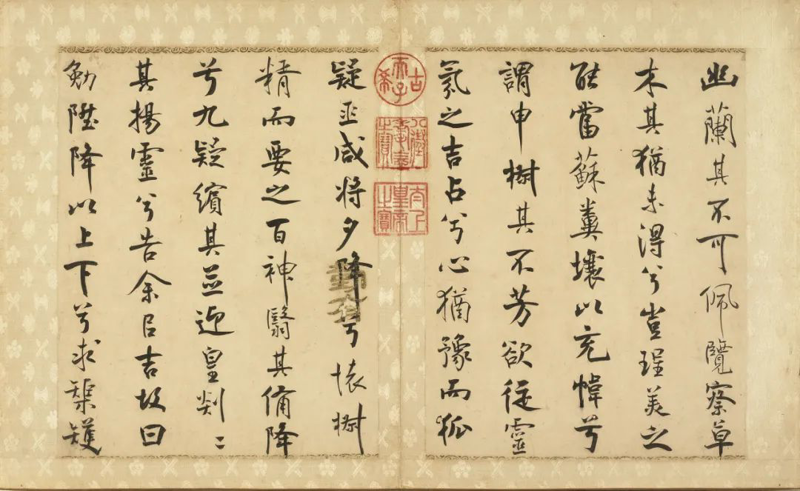 幽蘭其不可佩覽察草
木其猶未得兮豈珵美之
能當蘇糞壤以充幃兮
謂申椒其不芳欲從靈
氛之吉占兮心猶豫而狐
疑巫咸將夕降兮懷椒
精而要之百神翳其備降
兮九疑繽其並迎皇剡〻
其揚靈兮告余以吉故曰
勉陞降以上下兮求榘矱
古希天子
八徵耄念之寶
太上皇帝之寶